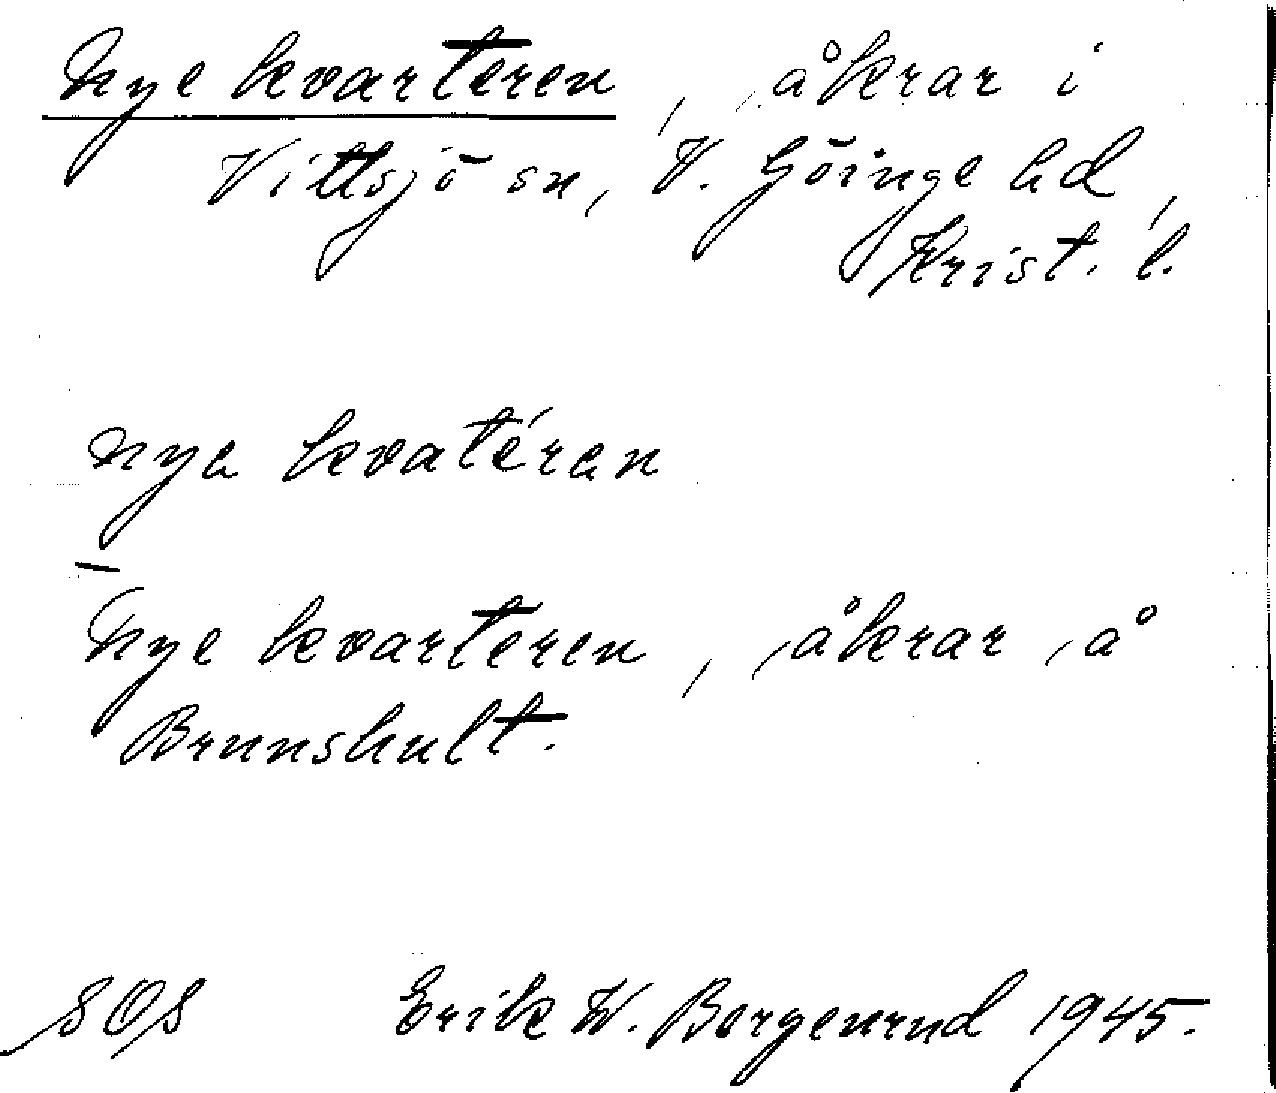 Nye kvarteren, åkrar i
Vittsjö sn, V. Göinge hd,
Krist. l.
nya kvatéran
Nye kvarteren, åkrar å
Brunshult.
SOS Erik W. Borgenrud 1945.